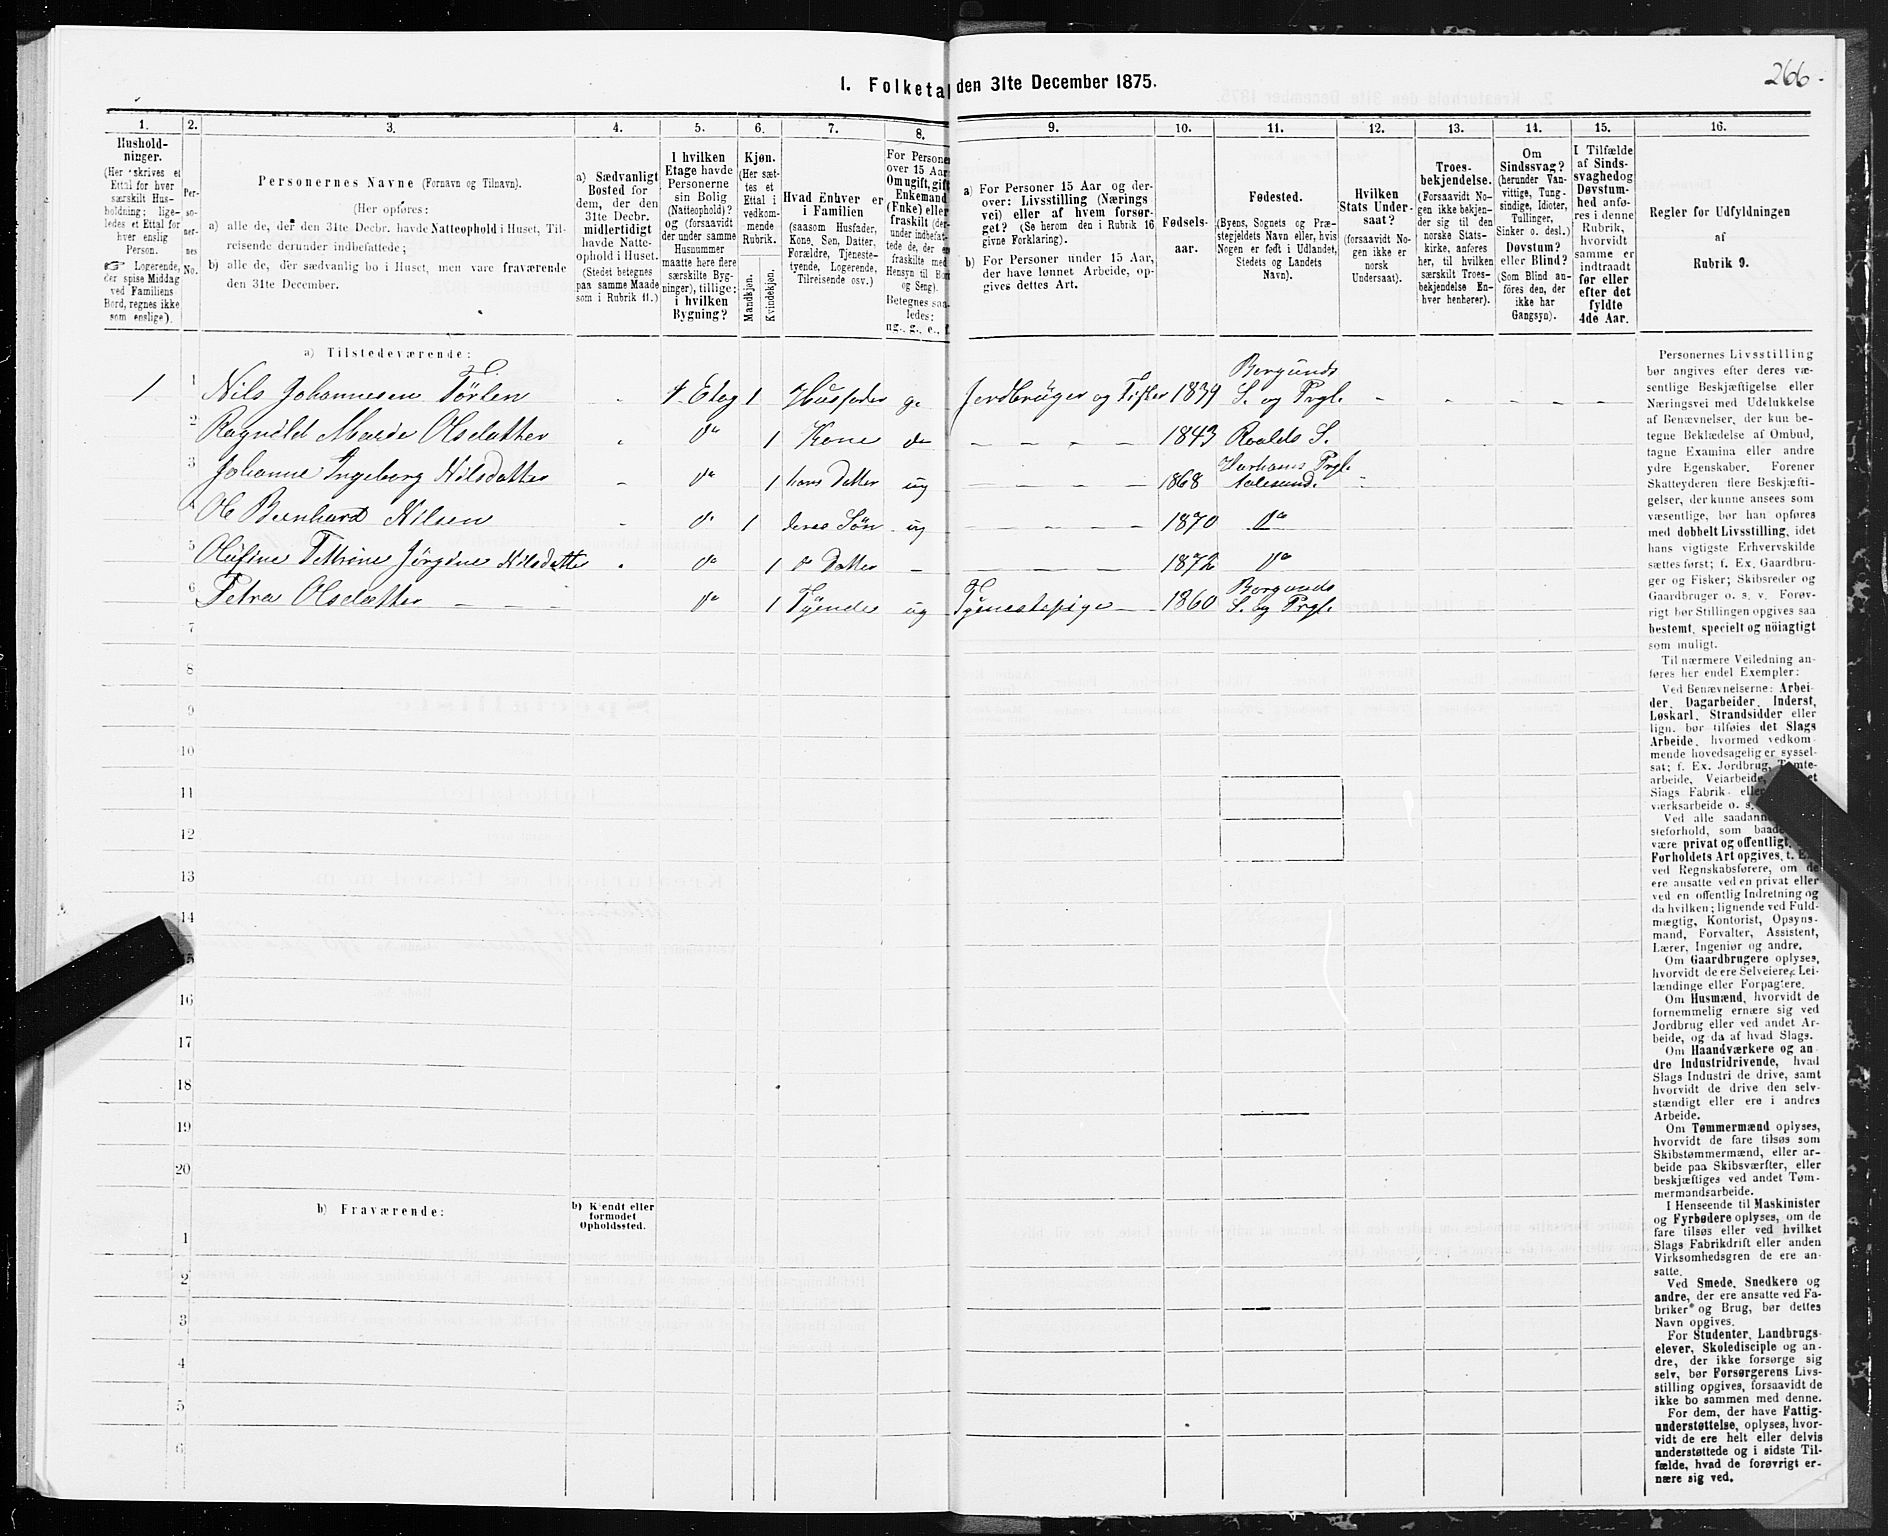 266.
I. Folketal den 31te December 1875.
1.
2.
3.
4.
5.
6.
7.
8.
9.
10.
11.
12.
13.
14.
15.
16.
Hushold-
ninger.
(Her skrives et
Ettal for hver
særskilt Hus-
holdning; lige-
ledes et Ettal for
hver enslig
Person.
☞ Logerende,
der spise Middag
ved Familiens
Bord, regnes ikke
som enslige).
Per-
so-
ner-
nes
No.
Personernes Navne (Fornavn og Tilnavn).
(Her opføres:
a) alle de, der den 31te Decbr. havde Natteophold i Huset, Til-
reisende derunder indbefattede;
b) alle de, der sædvanlig bo i Huset, men vare fraværende
den 31te December.
a) Sædvanligt
Bosted for
dem, der den
31te Decbr.
midlertidigt
havde Natte-
ophold i Huset.
(Stedet betegnes
paa samme Maade
som i Rubrik 11.)
I hvilken
Etage havde
Personerne
sin Bolig
(Natteophold)?
og (forsaavidt
der under samme
Husnummer
maatte høre flere
særskilte Byg-
ninger), tillige:
i hvilken
Bygning?
Kjøn.
(Her sæt-
tes et
Ettal i
vedkom-
mende
Rubrik.
Mandkjøn.
Kvindekjøn.
Hvad Enhver er
i Familien
(saasom Husfader,
Kone, Søn, Datter,
Forældre, Tjeneste-
tyende, Logerende,
Tilreisende osv.)
For Persone
over 15 Aar
Om ugift, gift
Enkemand
(Enke) eller
fraskilt (der-
under indbefat-
tede de, der er
fraskilte med
Hensyn til Bo
og Seng).
Betegnes saa-
ledes:
ug., g., e., f.
a) For Personer 15 Aar og der-
over: Livsstilling (Nærings
vei) eller af hvem forsør-
get? (Se herom den i Rubrik 16
givne Forklaring).
b) For Personer under 15 Aar,
der have lønnet Arbeide, op-
gives dettes Art.
Fødsels-
aar.
Fødested.
(Byens, Sognets og Præ-
stegjeldets Navn eller, hvis
Nogen er født i Udlandet,
Stedets og Landets
Navn).
Hvilken
Stats Under-
saat?
(forsaavidt No-
gen ikke er
norsk
Undersaat).
Troes-
bekjendelse.
(Forsaavidt No-
gen ikke bekjen-
der sig til den
norske Stats-
kirke, anføres
her, til hvilken
særskilt Troes-
bekjendelse En-
hver henhører).
Om
Sindssvag?
(herunder Van-
vittige, Tung-
sindige, Idioter,
Tullinger,
Sinker o. desl.)
Døvstum?
eller Blind?
(Som Blind an-
føres den, der
ikke har
Gangsyn).
I Tilfælde
af Sinds-
svaghed og
Døvstum-
hed anfø-
res i denne
Rubrik,
hvorvidt
samme er
indtraadt
før eller
efter det
fyldte
4de Aar.
Regler for Udfyldningen
af
Rubrik 9.
a) Tilstedeværende:
1 1 Nils Johannesen Tørlen - 1. Etag 1 Husfader g. Jordbruger og Fisker 1839 Borgunds S. og Prgl.
2 Ragnild Marie Olsdatter - do 1 Kone do 1843 Roalds S. Harhams Prgl.
3 Johanne Ingeborg Nilsdatter - do 1 hans Datter ug 1868 Aalesund.
4 Ole Bernhard Nilsen - do 1 deres Søn ug 1870 do
5 Olufine Jørgine Nilsdatter - do 1 do Datter - 1872 do
6 Petra Olsdatter - do 1 Tyende ug Tjenestepige 1860 Borgunds S. og Prgl.
7
8
9
10
11
12
13
14
15
16
17
18
19
20
b) Fraværende:
b) Kjendt eller
formodet
Opholdssted.
1
2
3
4
5
6
Personernes Livsstilling
bør angives efter deres væ-
sentlige Beskjæftigelse eller
Næringsvei med Udelukkelse
af Benævnelser, der kun be-
tegne Beklædelse af Ombud,
tagne Examina eller andre
ydre Egenskaber. Forener
Skatteyderen flere Beskjæfti-
gelser, der kunne ansees som
væsentlige, bør han opføres
med dobbelt Livsstilling, idet
hans vigtigste Erhvervskilde
sættes først; f. Ex. Gaardbru-
ger og Fisker; Skibsreder og
Gaardbruger o. s. v. Forøv-
rigt bør Stillingen opgives saa
bestemt, specielt og nøiagtigt
som muligt.
Til nærmere Veiledning an-
føres her endel Exempler:
Ved Benævnelserne: Arbei-
der, Dagarbeider, Inderst,
Løskarl, Strandsidder eller
lign. bør tilføies det Slags
Arbeide, hvormed vedkom-
mende hovedsagelig er syssel-
sat; f. Ex. Jordbrug, Tomte-
arbeide, Veiarbeide,
Slags Fabrik- eller
værksarbeide o. s.
Ved alle saadanne
steforhold, som baade
være privat og offentligt,
Forholdets Art opgives, t. Ex.
ved Regnskabsførere, om de
ere ansatte ved en privat eller
ved en offentlig Indretning og
da hvilken; lignende ved Fuld-
mægtig, Kontorist, Opsyns-
mand, Forvalter, Assistent,
Lærer, Ingeniør og andre.
Om Gaardbrugere oplyses,
hvorvidt de ere Selveiere, Lei-
lændinge eller Forpagtere.
Om Husmænd, hvorvidt de
fornemmelig ernære sig ved
Jordbrug eller ved andet Ar-
beide, og da af hvad Slags.
Om Haandværkere og an
dre Industridrivende, hvad
Slags Industri de drive, samt
hvorvidt de drive den selv-
stændigt eller ere i andres
Arbeide.
Om Tømmermænd oplyses,
hvorvidt de fare tilsøs som
Skibstømmermænd, eller ar-
beide paa Skibsværfter, eller
beskjæftiges ved andet Tøm-
mermandsarbeide.
I Henseende til Maskinister
og Fyrbødere oplyses, om de
fare tilsøs eller ved hvilket
Slags Fabrikdrift eller anden
Virksomhedsgren de ere an-
satte.
Ved Smede, Snedkere og
andre, der ere ansatte ved Fa-
briker og Brug, bør dettes
Navn opgives.
For Studenter, Landbrugs-
elever, Skoledisciple og an-
dre, der ikke forsørge sig
selv, bør Forsørgerens Livs-
stilling opgives, forsaavidt de
ikke bo sammen med denne.
For dem, der have Fattig-
understøttelse, oplyses, hvor-
vidt de ere helt eller delvis
understøttede og i sidste Til-
fælde, hvad de forøvrigt er-
nære sig ved.